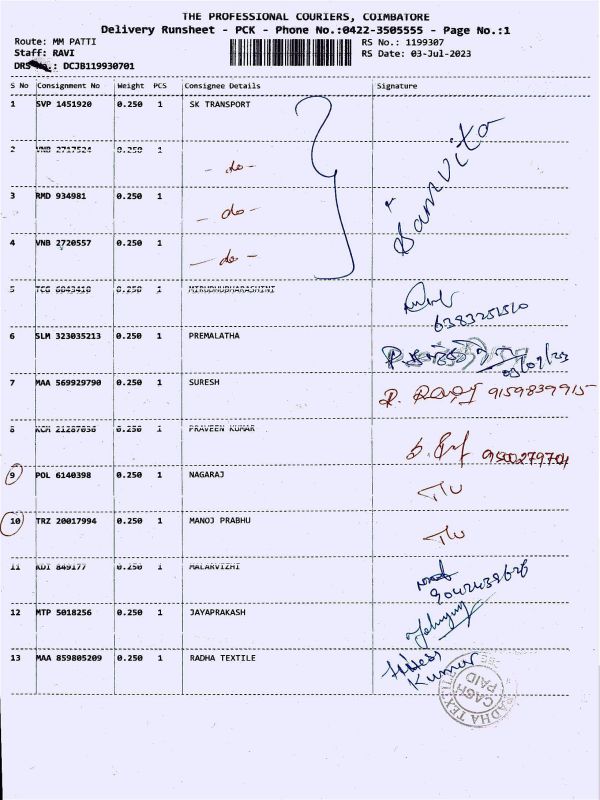 THE PROFESSIONAL COURIERS, COIMBATORE
Delivery Runsheet - PCK - Phone No.:0422-3505555 - Page No.:1
Route: MM PATTI RS No.: 1199307
Staff: RAVI RS Date: 03-Jul-2023
DRS No.: DCJB119930701
S No Consignment No Weight PCS Consignee Details Signature
1 SVP 1451920 0.250 1 SK TRANSPORT
2 VNB 2717524 0.250 1 - do -
3 RMD 934981 0.250 1 - do -
4 VNB 2720557 0.250 1 - do -
5 TCG 6843418 0.250 1 MIRUDHUBHARASHINI
6383251510
6 SLM 323035213 0.250 1 PREMALATHA
03/07/23
7 MAA 569929790 0.250 1 SURESH 9159839915
8 KCM 21287036 0.250 1 PRAVEEN KUMAR
9500279704
9 POL 6140398 0.250 1 NAGARAJ
10 TRZ 20017994 0.250 1 MANOJ PRABHU
11 KDI 849177 0.250 1 MALARVIZHI
9042439626
12 MTP 5018256 0.250 1 JAYAPRAKASH
13 MAA 859805209 0.250 1 RADHA TEXTILE
Kumar
CASH
PAID